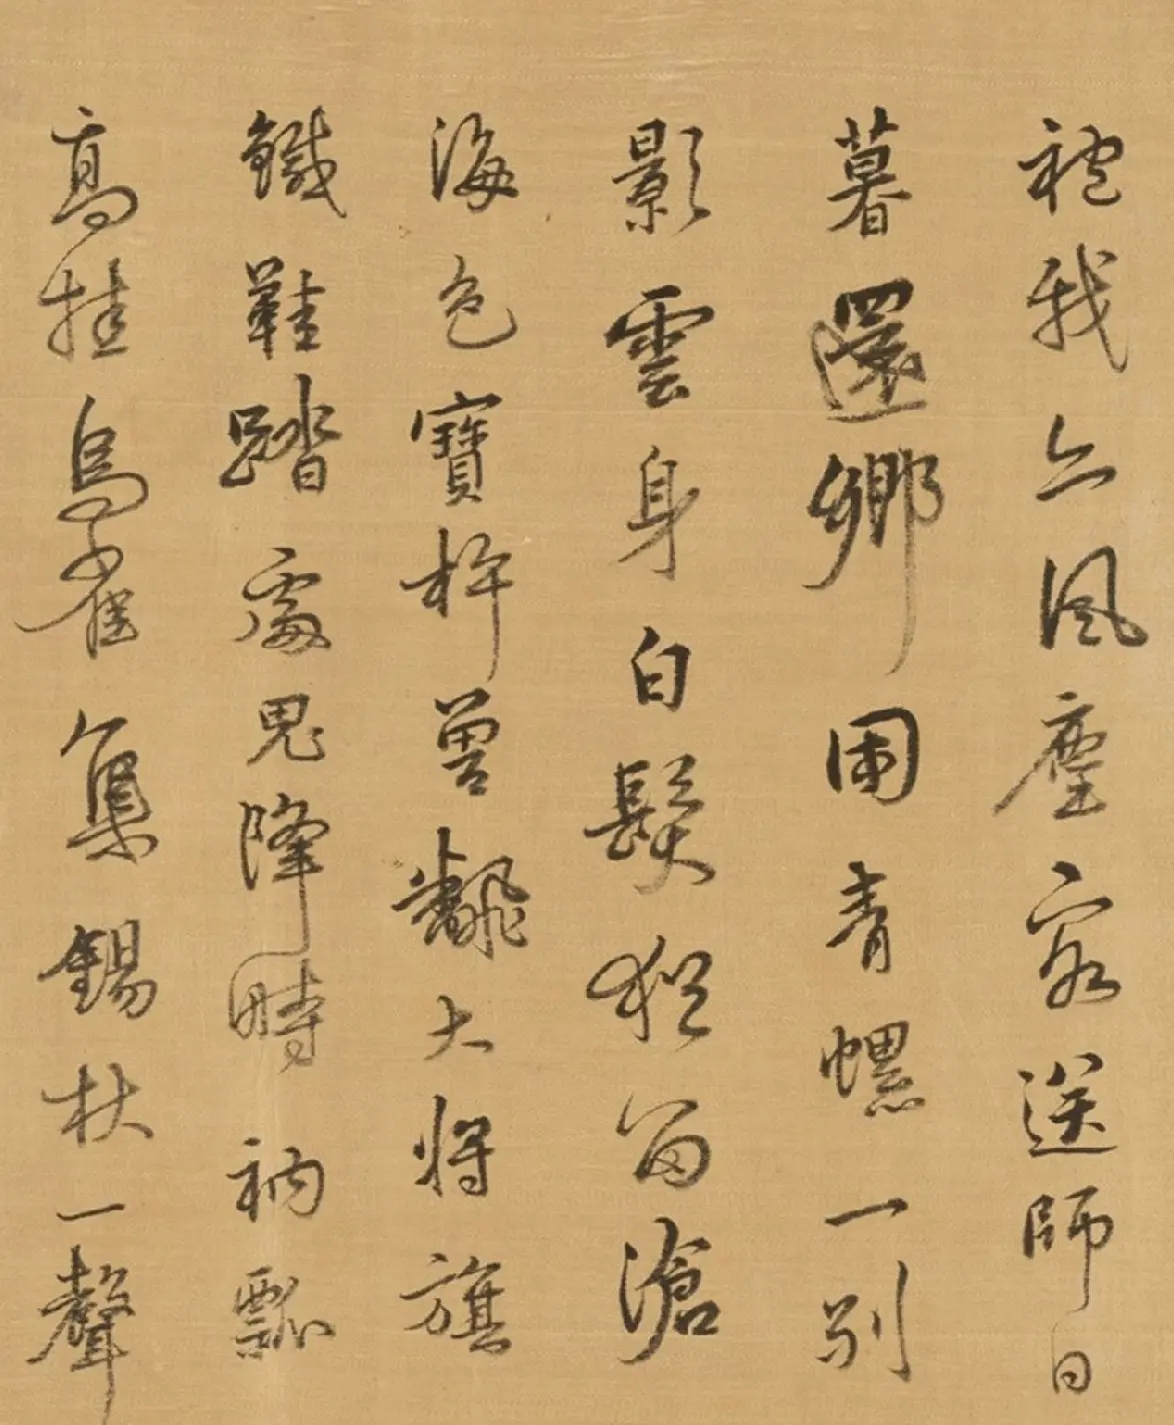 袍我亦風塵客送師日
暮還鄉國青螺一別
影雲身白髮猶留滄
海色寶杵曾翻大將旗
鐵鞋踏處鬼降時衲瓢
高挂烏雀集錫杖一聲